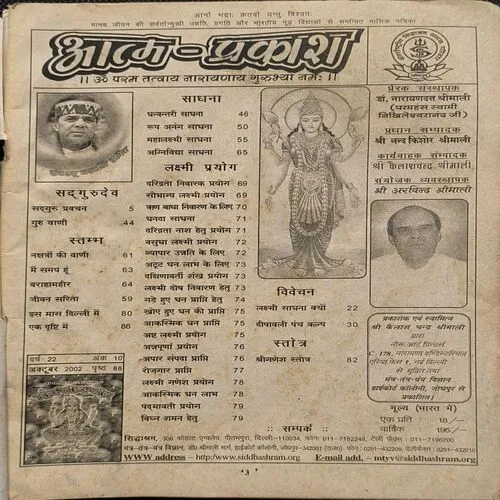 आनो भद्राः क्रतवो यन्तु विश्वतः
मानव जीवन की सर्वतोन्मुखी उन्नति, प्रगति और भारतीय गूढ़ विद्याओं से समन्वित मासिक पत्रिका
आत्म-प्रकाश
।। ॐ परम तत्वाय नारायणाय गुरुभ्यो नमः ।।
सद्गुरुदेव
सद्गुरु प्रवचन 5
गुरु वाणी 44
स्तम्भ
नक्षत्रों की वाणी 61
मैं समय हूं 63
वराहमिहिर 64
जीवन सरिता 59
इस मास दिल्ली में 80
एक दृष्टि में 86
वर्ष 22 अंक 10
अक्टूबर 2002 पृष्ठ 88
साधना
धन्वन्तरी साधना 46
रूप अनंग साधना 50
महालक्ष्मी साधना 55
अग्निविद्या साधना 65
लक्ष्मी प्रयोग
दरिद्रता निवारक प्रयोग 69
सौभाग्य लक्ष्मी प्रयोग 69
ऋण बाधा निवारण के लिए 70
धनदा साधना 71
दरिद्रता नाश हेतु प्रयोग 71
वसुधा लक्ष्मी प्रयोग 72
व्यापार उन्नति के लिए 72
अटूट धन लाभ के लिए 73
दक्षिणावर्ती शंख प्रयोग 73
लक्ष्मी दोष निवारण हेतु 74
गड़े हुए धन प्राप्ति हेतु 74
खोए हुए धन की प्राप्ति 75
आकस्मिक धन प्राप्ति 75
अष्ट लक्ष्मी प्रयोग 75
अन्नपूर्णा प्रयोग 76
अपार संपदा प्राप्ति 76
रोजगार प्राप्ति 77
लक्ष्मी गणेश प्रयोग 78
आकस्मिक धन लाभ 78
पदमावती प्रयोग 79
विघ्न शमन हेतु 79
विवेचन
लक्ष्मी साधना क्यों 22
दीपावली पंच कल्प 30
स्तोत्र
श्रीगणेश स्तोत्र 82
प्रेरक संस्थापक
डॉ. नारायणदत्त श्रीमाली
(परमहंस स्वामी
निखिलेश्वरानंद जी)
प्रधान सम्पादक
श्री नन्द किशोर श्रीमाली
कार्यवाहक सम्पादक
श्री कैलाशचन्द्र श्रीमाली
संयोजक व्यवस्थापक
श्री अरविन्द श्रीमाली
प्रकाशक एवं स्वामित्व
श्री कैलाश चन्द्र श्रीमाली
द्वारा
नीरू आर्ट प्रिन्टर्स
C 178, नारायणा इण्डस्ट्रियल
एरिया फेस 1, नई दिल्ली
से मुद्रित तथा
मंत्र-तंत्र-यंत्र विज्ञान
हाईकोर्ट कॉलोनी, जोधपुर से
प्रकाशित।
मूल्य (भारत में)
एक प्रति : 18/-
वार्षिक : 195/-
:: सम्पर्क ::
सिद्धाश्रम, 306 कोहाट एन्क्लेव, पीतमपुरा, दिल्ली-110034, फोनः 011-7182248, टेली फैक्स : 011-7196700
मंत्र-तंत्र-यंत्र विज्ञान, डॉ. श्रीमाली मार्ग, हाईकोर्ट कॉलोनी, जोधपुर-342001 (राज0) फोनः 0291-432209, टेलीफैक्स : 0291-432010
WWW address – http://www.siddhashram.org E-mail add. – mtyv@siddhashram.org
'3'